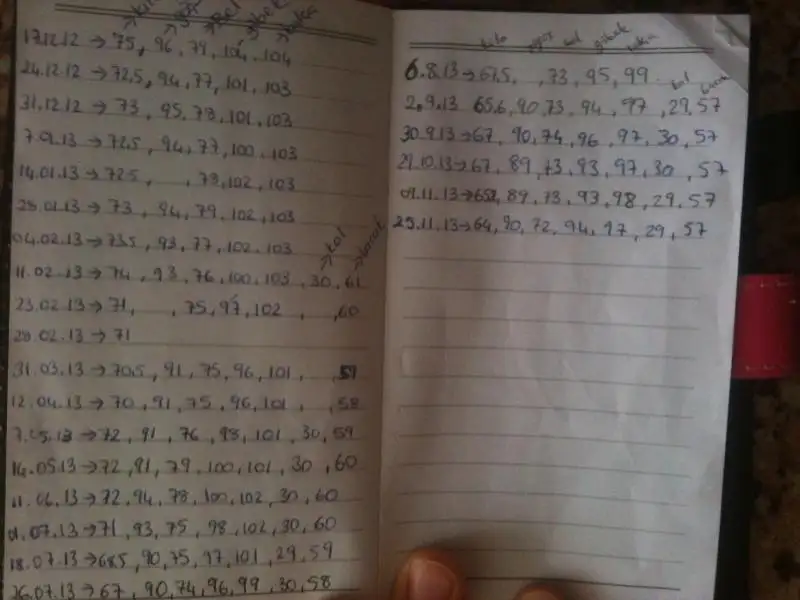 kilo göğüs bel göbek kalça
17.12.12 → 75, 96, 79, 104, 104
24.12.12 → 72,5, 94, 77, 101, 103
31.12.12 → 73, 95, 78, 101, 103
7.01.13 → 72,5, 94, 77, 100, 103
14.01.13 → 72,5, , 78, 102, 103
28.01.13 → 73, 94, 79, 102, 103
04.02.13 → 73,5, 93, 77, 102, 103
kol bacak
11.02.13 → 74, 93, 76, 100, 103, 30, 61
23.02.13 → 71, , 75, 97, 102, ,60
28.02.13 → 71
31.03.13 → 70,5, 91, 75, 96, 101, , 59
12.04.13 → 70, 91, 75, 96, 101, , 58
7.05.13 → 72, 91, 76, 98, 101, 30, 59
14.05.13 → 72, 91, 79, 100, 101, 30, 60
11.06.13 → 72, 94, 78, 100, 102, 30, 60
01.07.13 → 71, 93, 75, 98, 102, 30, 60
18.07.13 → 68,5, 90, 75, 97, 101, 29, 59
26.07.13 → 67, 90, 74, 96, 99, 30, 58
kilo göğüs bel göbek kalça
6.8.13 → 67,5, , 73, 95, 99
kol bacak
2.9.13 65,6, 90, 73, 94, 97, 29, 57
30.9.13 → 67, 90, 74, 96, 97, 30, 57
21.10.13 → 67, 89, 73, 93, 97, 30, 57
01.11.13 → 89, 73, 93, 98, 29, 57
25.11.13 → 64, 90, 72, 94, 97, 29, 57